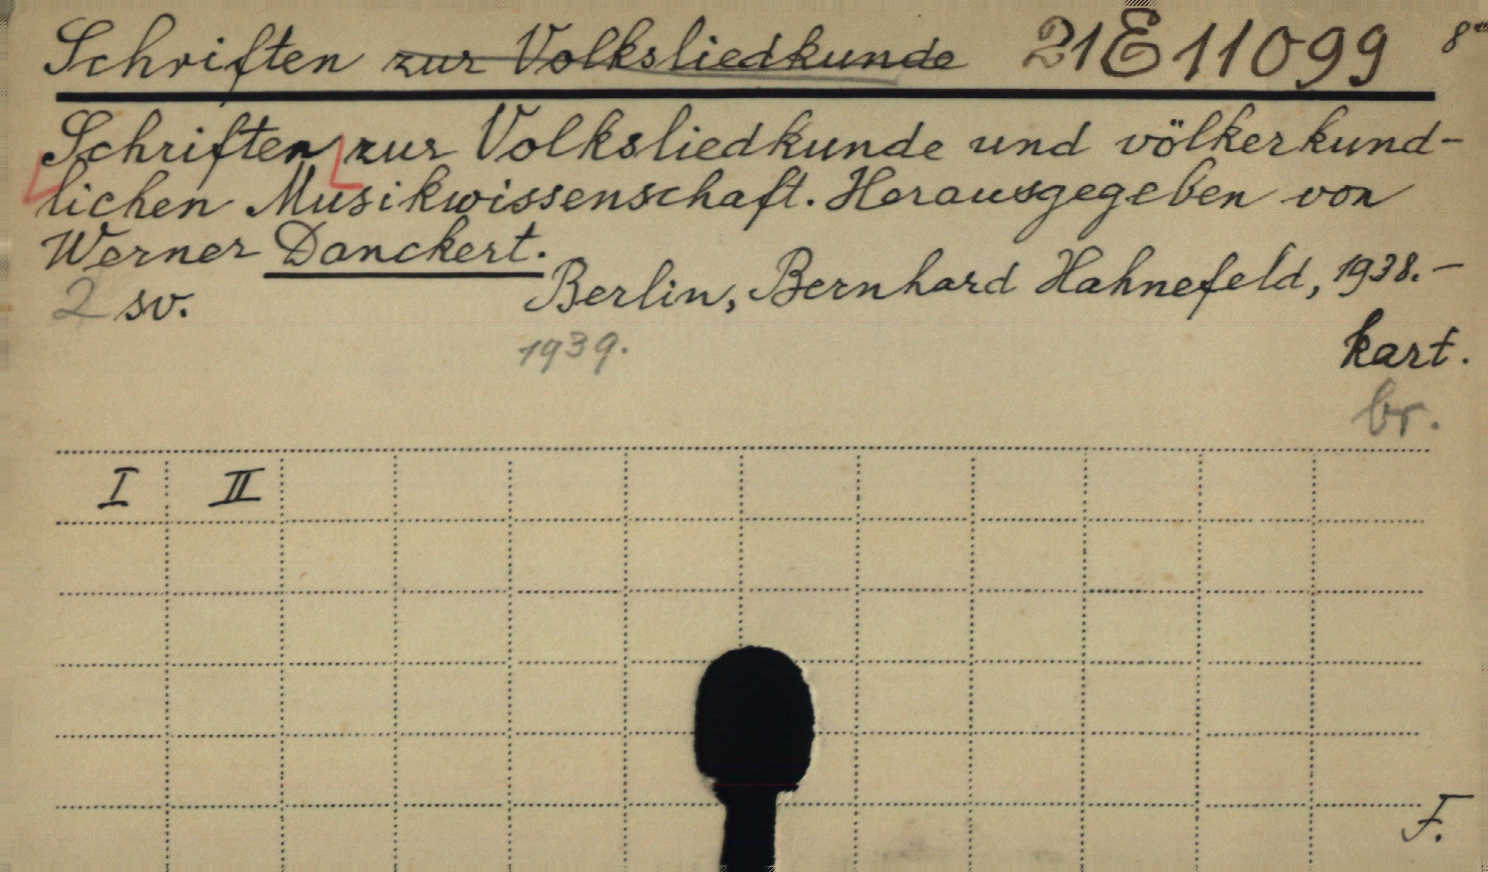 Schriften zur Volksliedkunde 21E11099 8°
Schriften zur Volksliedkunde und völkerkund-
lichen Musikwissenschaft. Herausgegeben von
Werner Danckert.
2 sv. Berlin, Bernhard Hahnefeld, 1938.-
1939. kart.
br.
I II
F.